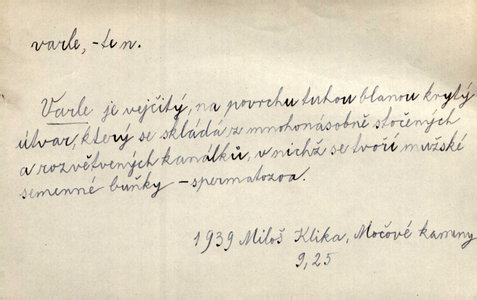 varle, -te n.
Varle je vejčitý, na povrchu tuhou blanou krytý
útvar, který se skládá z mnohonásobně stočených
a rozvětvených kanálků, v nichž se tvoří mužské
semenné buňky - spermatozoa.
1939 Miloš Klika, Močové kameny
9, 25